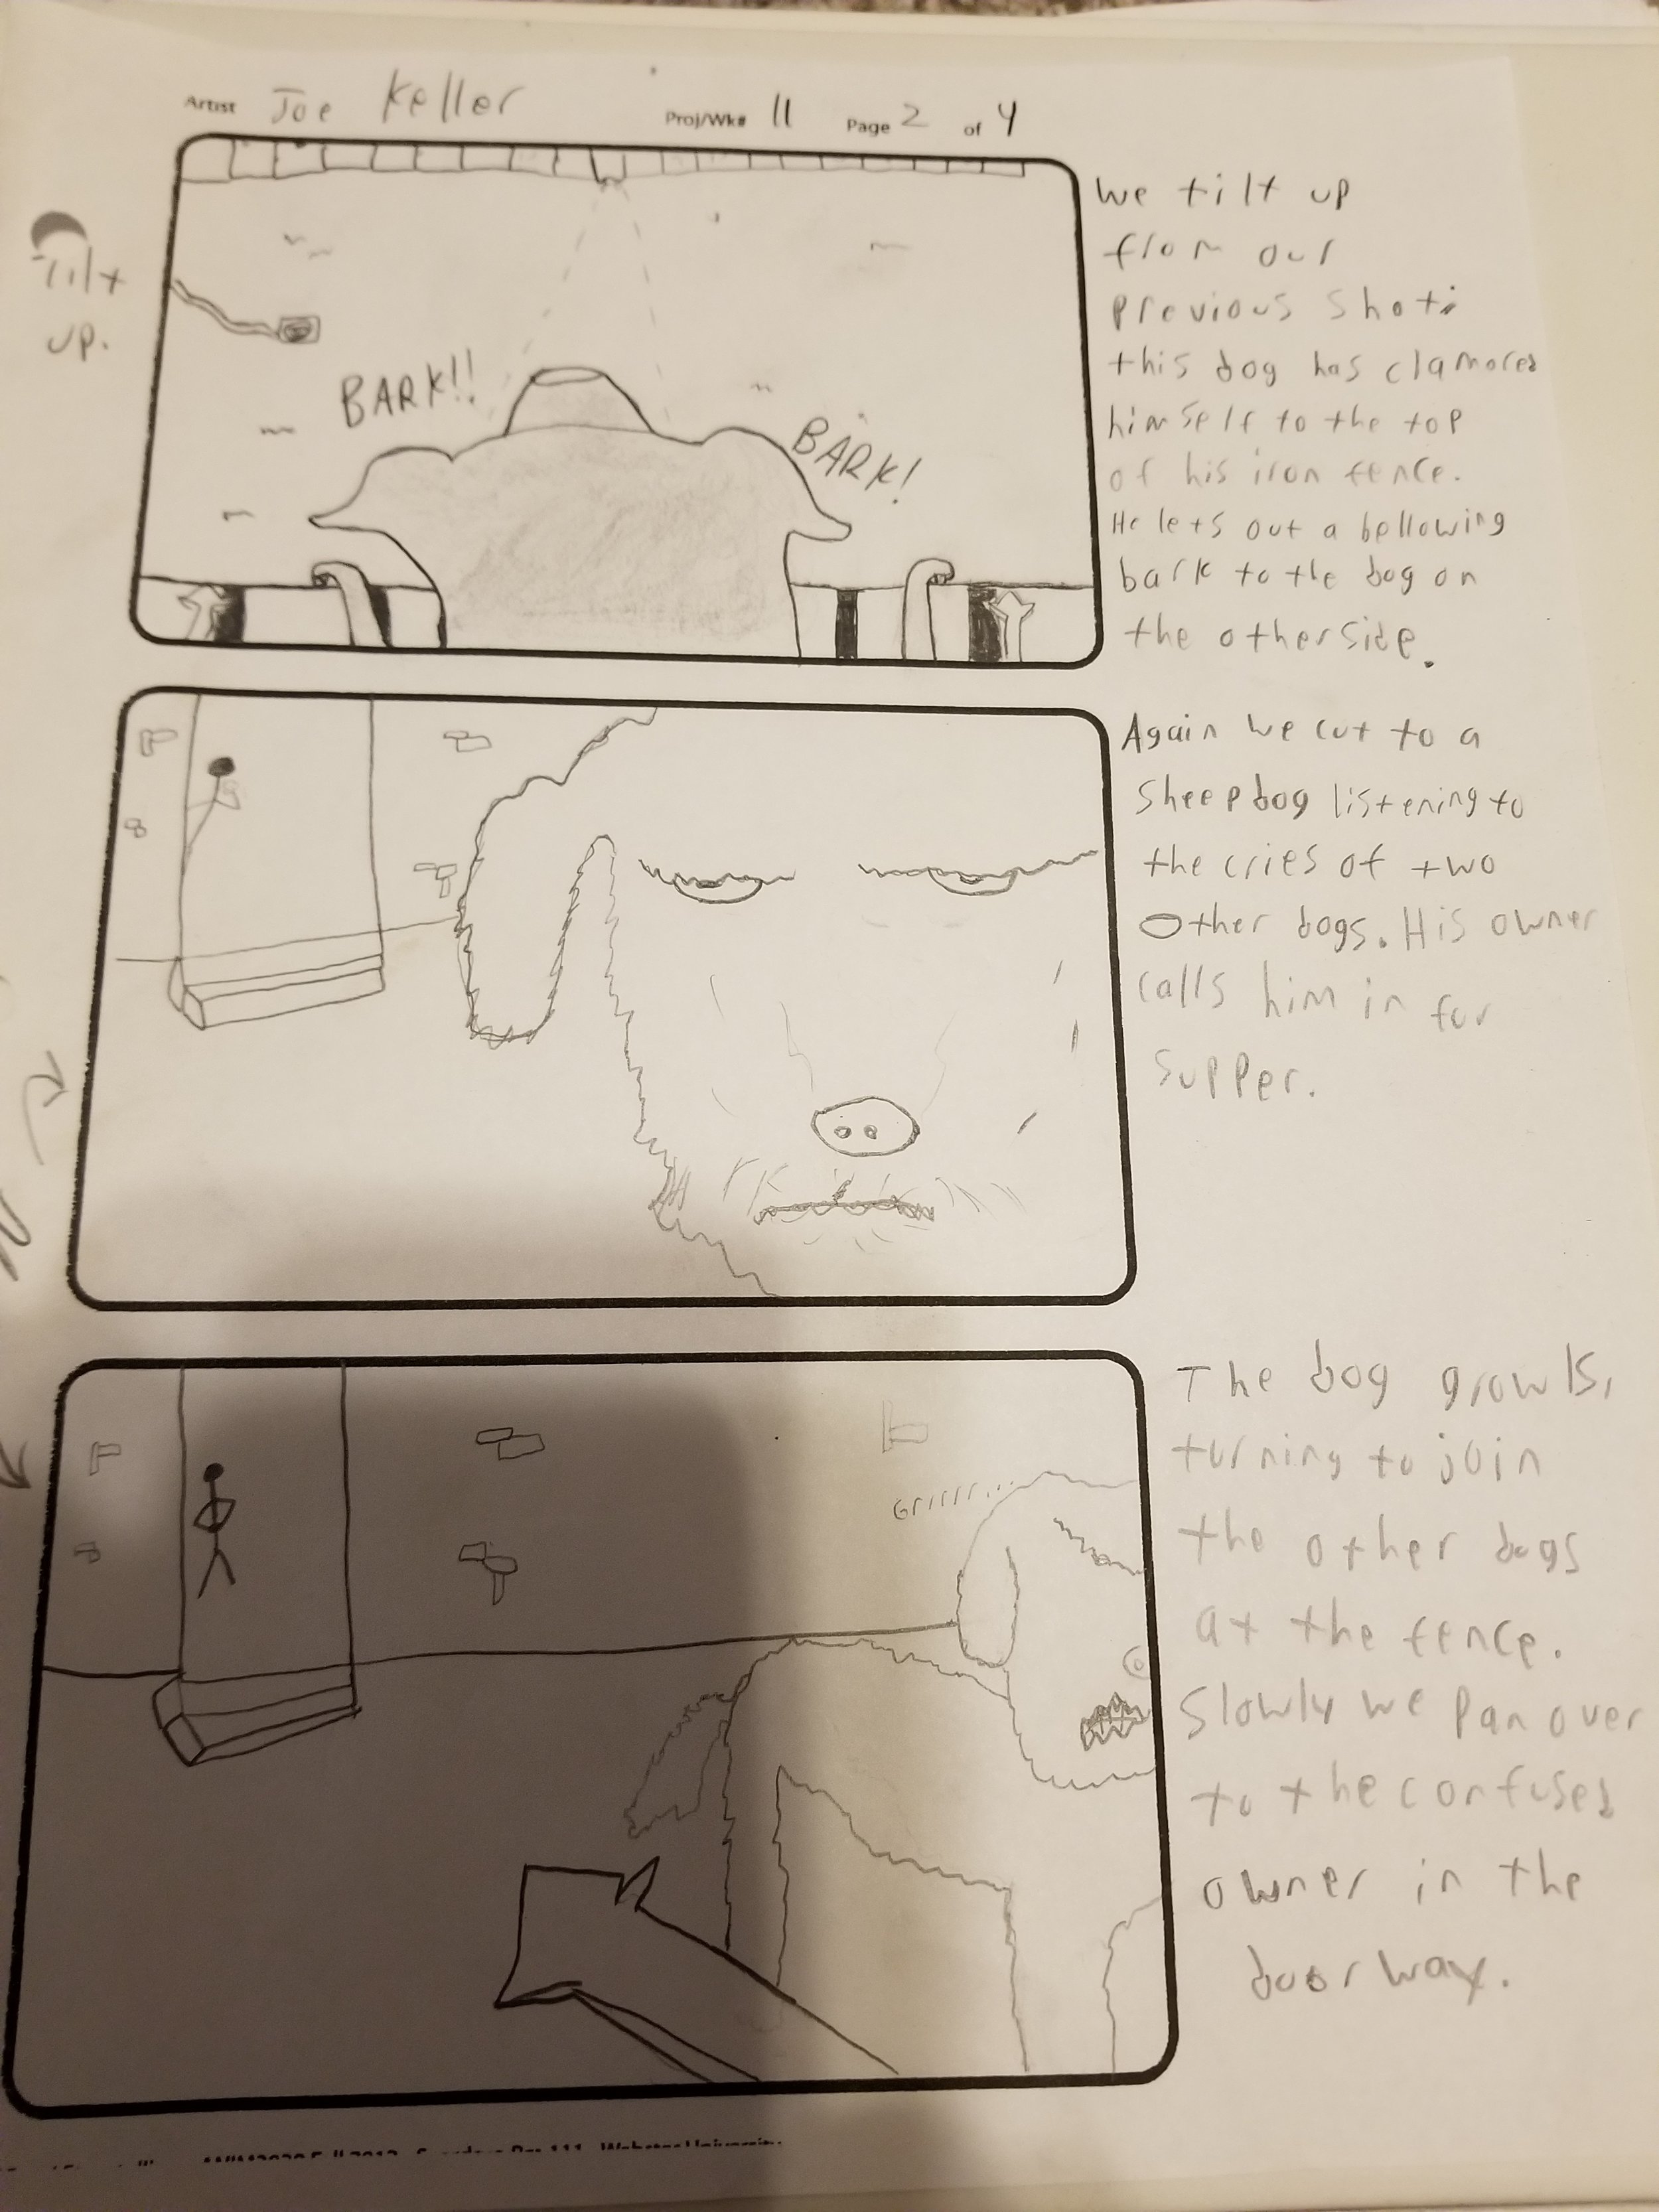 Artist Joe Keller Proj/Wk# 11 Page 2 of 4
Tilt
up.
BARK!!
BARK!
We tilt up
from our
previous shot.
this dog has clamored
himself to the top
of his iron fence.
He lets out a bellowing
bark to the dog on
the other side.
Again we cut to a
Sheepdog listening to
the cries of two
Other dogs. His owner
calls him in for
supper.
Grrrrr...
The dog growls,
turning to join
the other dogs
at the fence.
Slowly we pan over
to the confused
owner in the
doorway.